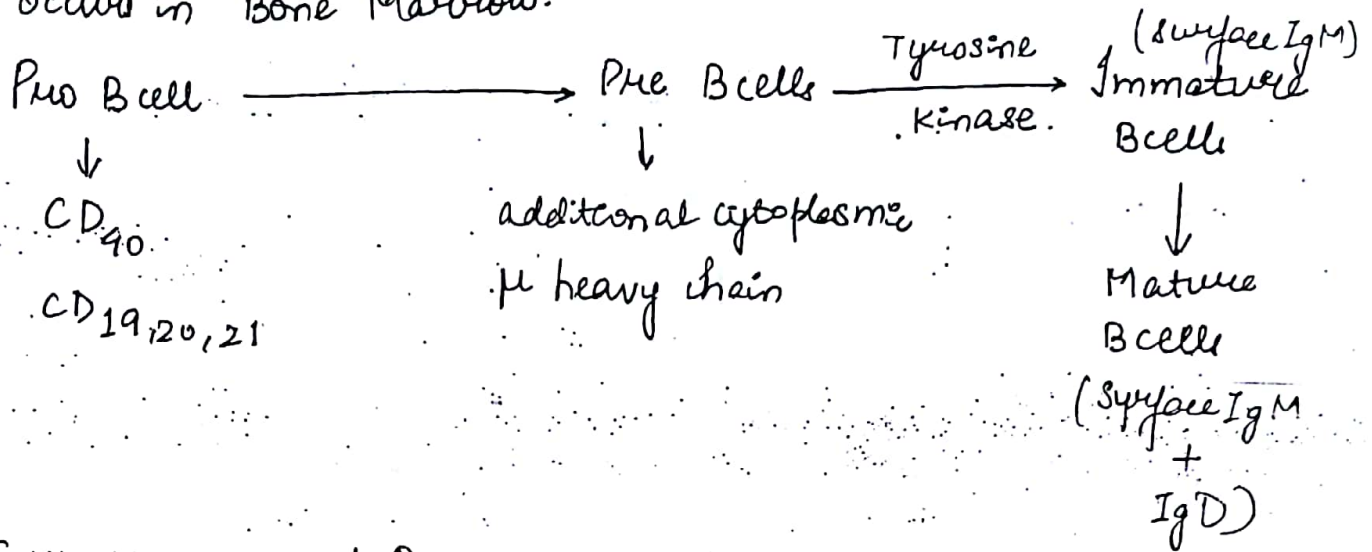 occurs in Bone Marrow.
Pro B cell → Pre B cells Tyrosine Kinase. → (surface IgM) Immature B cells
↓ ↓ ↓
CD40 additional cytoplasmic
CD19,20,21 μ heavy chain Mature
B cells
(Surface IgM
+
IgD)